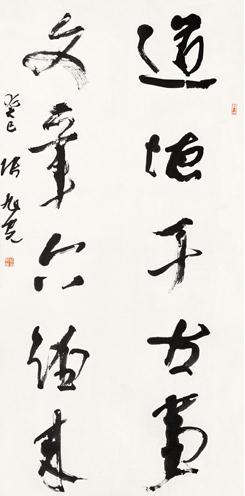 道德千古
文章六经来
癸巳 张旭光